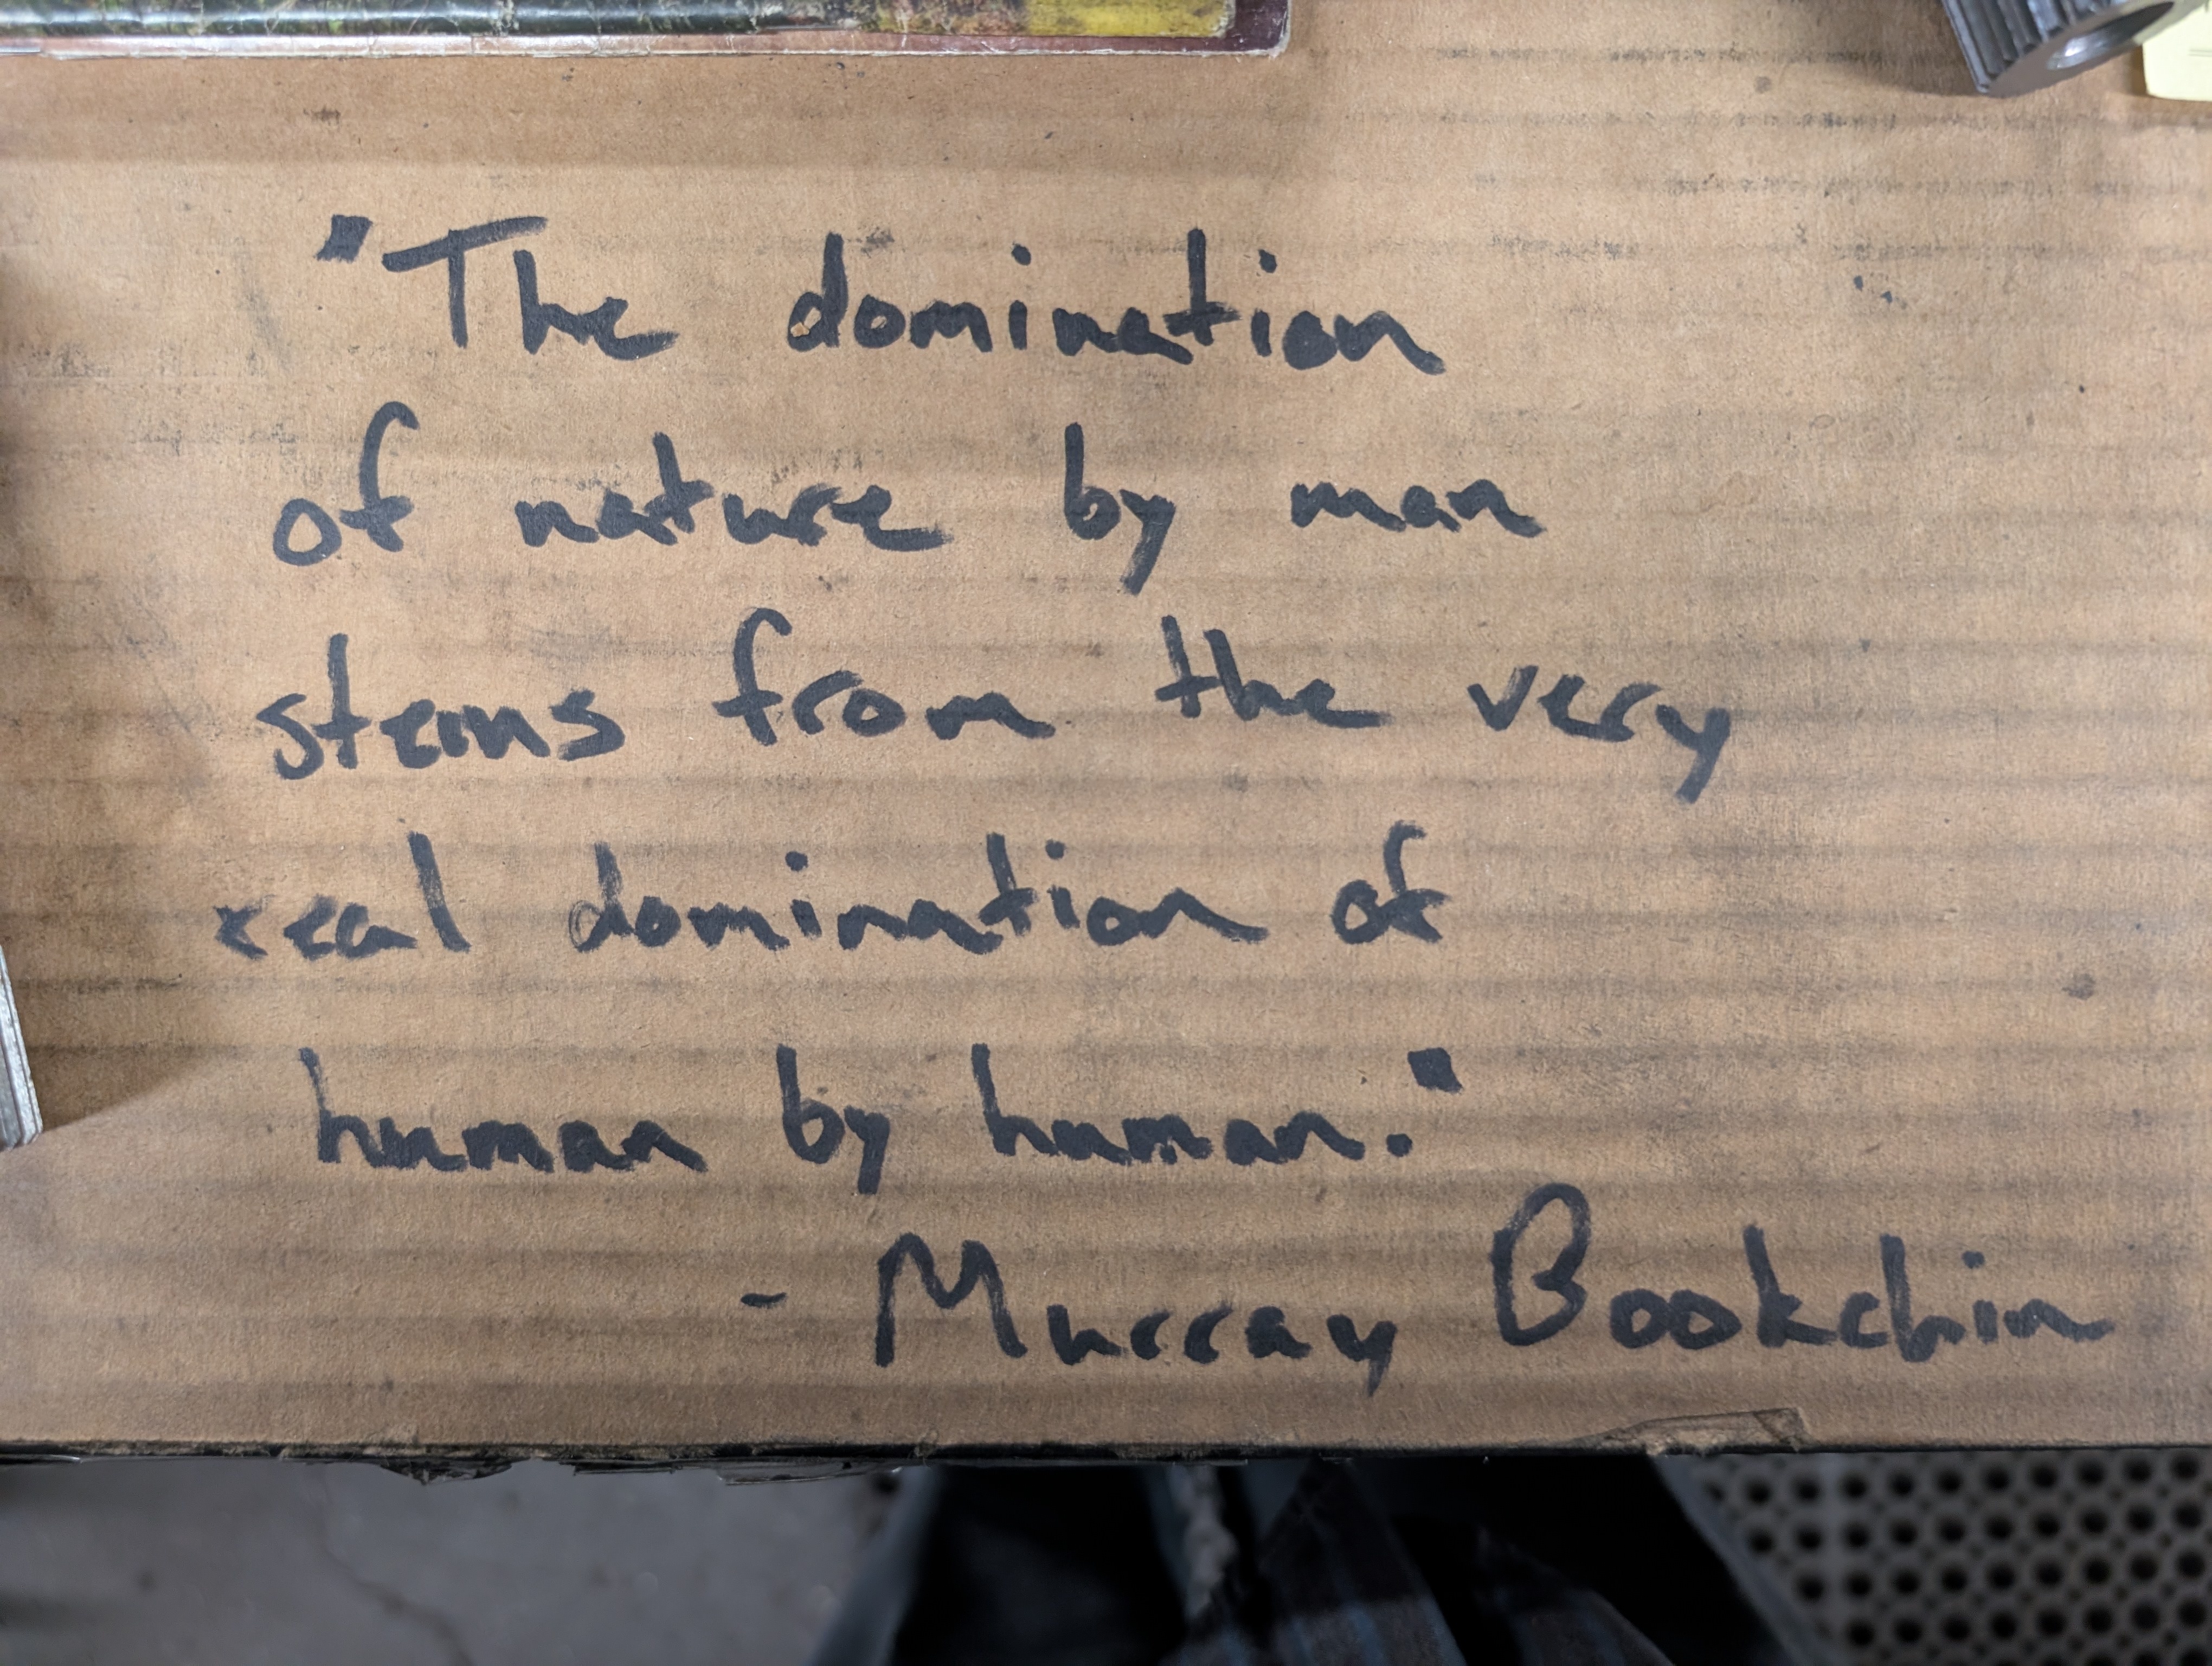 "The domination
of nature by man
stems from the very
real domination of
human by human."
- Murray Bookchin